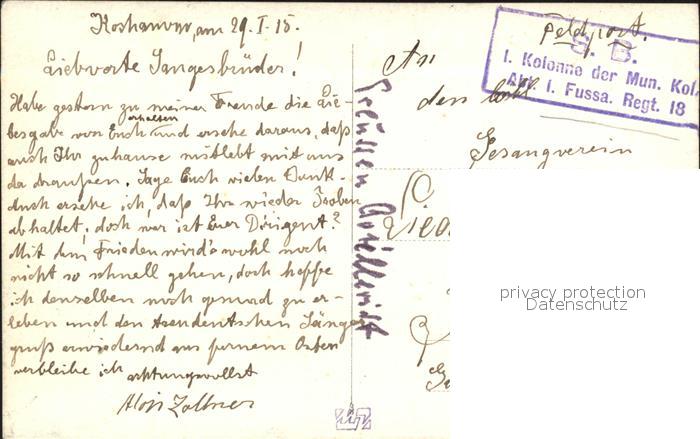 am 29.I.15.
Liebwerte Sangesbrüder!
Habe gestern zu meiner Freude die Lie-
besgabe von Euch erhalten und ersehe daraus, daß
auch Ihr zuhause mitlebt mit uns
da draußen. Sage Euch vielen Dank.
Auch ersehe ich, daß Ihr wieder Proben
abhaltet, doch wer ist Euer Dirigent?
Mit dem Frieden wird's wohl noch
nicht so schnell gehen, doch hoffe
ich denselben noch gesund zu er-
leben und den Sänger
gruß erwiedernd aus fernem Osten
verbleibe ich achtungsvollst
Alois Zollner
Artillerist
Feldpost.
S. B.
I. Kolonne der Mun. Kol.
Abt. I. Fussa. Regt. 18
An
den löbl.
Gesangverein
privacy protection
Datenschutz